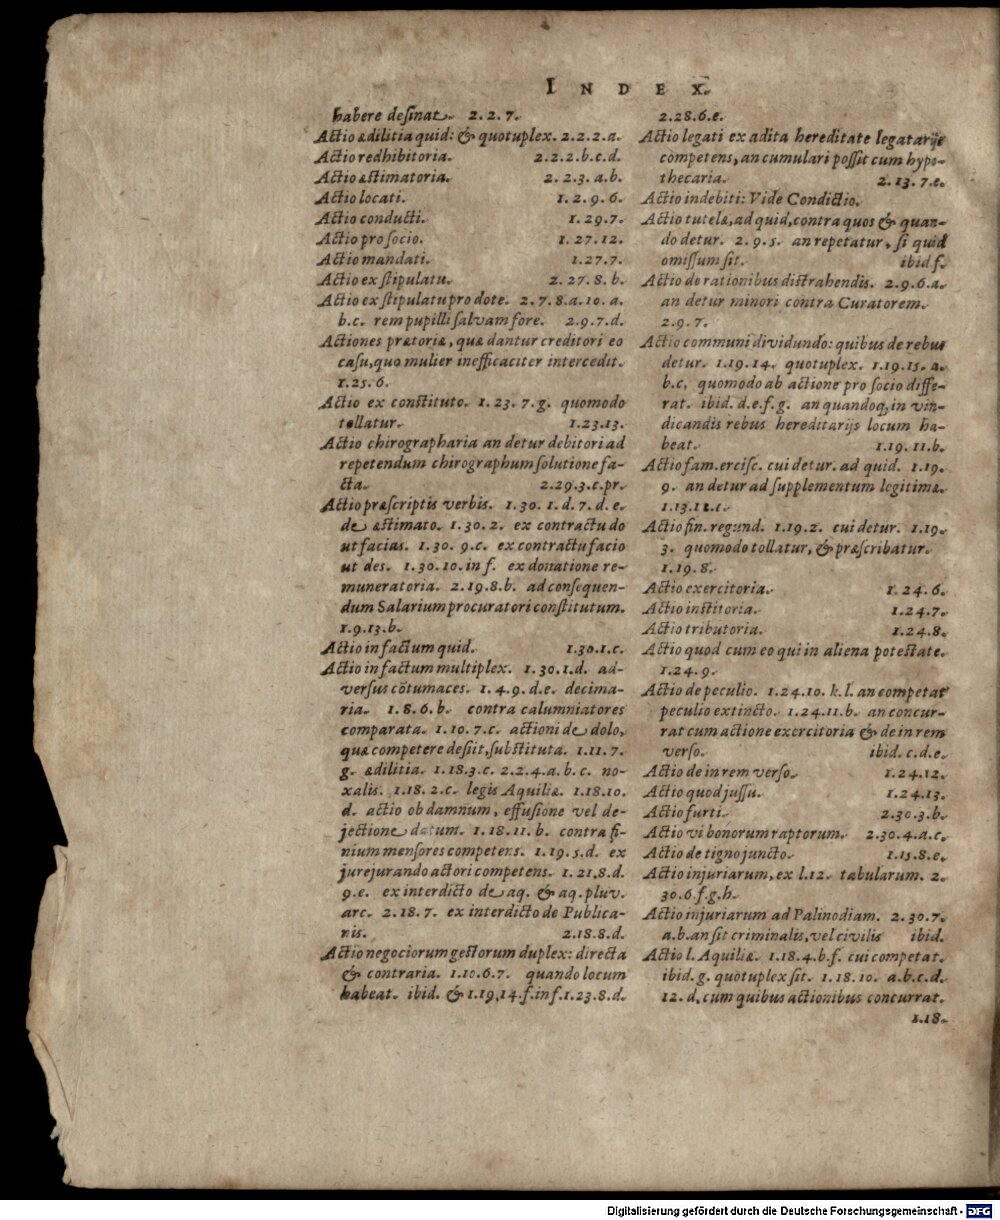 INDEX.
habere desinat. 2.2.7.
Actio ædilitia quid: & quotuplex. 2.2.2.a.
Actio redhibitoria. 2.2.2.b.c.d.
Actio æstimatoria. 2.2.3.a.b.
Actio locati. 1.2.9.6.
Actio conducti. 1.29.7.
Actio pro socio. 1.27.12.
Actio mandati. 1.27.7.
Actio ex stipulatu. 2.27.8.b.
Actio ex stipulatu pro dote. 2.7.8.a.10.a.
b.c. rem pupilli salvam fore. 2.9.7.d.
Actiones prætoriæ, quæ dantur creditori eo
casu, quo mulier inefficaciter intercedit.
1.25.6.
Actio ex constituto. 1.23.7.g. quomodo
tollatur. 1.23.13.
Actio chirographaria an detur debitori ad
repetendum chirographum solutione fa-
cta. 2.29.3.c.pr.
Actio præscriptis verbis. 1.30.1.d.7.d.e.
de æstimato. 1.30.2. ex contractu do
ut facias. 1.30.9.c. ex contractu facio
ut des. 1.30.10.in f. ex donatione re-
muneratoria. 2.19.8.b. ad consequen-
dum Salarium procuratori constitutum.
1.9.13.b.
Actio in factum quid. 1.30.1.c.
Actio in factum multiplex. 1.30.1.d. ad-
versus cõtumaces. 1.4.9.d.e. decima-
ria. 1.8.6.b. contra calumniatores
comparata. 1.10.7.c. actioni de dolo,
quæ competere desiit, substituta. 1.11.7.
g. ædilitia. 1.18.3.c. 2.2.4.a.b.c. no-
xalis. 1.18.2.c. legis Aquiliæ. 1.18.10.
d. actio ob damnum, effusione vel de-
jectione datum. 1.18.11.b. contra fi-
nium mensores competens. 1.19.5.d. ex
jurejurando actori competens. 1.21.8.d.
9.e. ex interdicto de aq. & aq. pluv.
arc. 2.18.7. ex interdicto de Publica-
nis. 2.18.8.d.
Actio negociorum gestorum duplex: directa
& contraria. 1.10.6.7. quando locum
habeat. ibid. & 1.19.14.f.inf.1.23.8.d.
2.28.6.e.
Actio legati ex adita hereditate legatarijs
competens, an cumulari possit cum hypo-
thecaria. 2.13.7.e.
Actio indebiti: Vide Condictio.
Actio tutelæ, ad quid, contra quos & quan-
do detur. 2.9.5. an repetatur, si quid
omissum sit. ibid f.
Actio de rationibus distrahendis. 2.9.6.a.
an detur minori contra Curatorem.
2.9.7.
Actio communi dividundo: quibus de rebus
detur. 1.19.14. quotuplex. 1.19.15.a.
b.c. quomodo ab actione pro socio diffe-
rat. ibid. d.e.f.g. an quandoq; in vin-
dicandis rebus hereditarijs locum ha-
beat. 1.19.11.b.
Actio fam. ercisc. cui detur. ad quid. 1.19.
9. an detur ad supplementum legitimæ.
1.13.12.c.
Actio fin. regund. 1.19.2. cui detur. 1.19.
3. quomodo tollatur, & præscribatur.
1.19.8.
Actio exercitoria. 1.24.6.
Actio institoria. 1.24.7.
Actio tributoria. 1.24.8.
Actio quod cum eo qui in aliena potestate.
1.24.9.
Actio de peculio. 1.24.10.k.l. an competat
peculio extincto. 1.24.11.b. an concur-
rat cum actione exercitoria & de in rem
verso. ibid. c.d.e.
Actio de in rem verso. 1.24.12.
Actio quod jussu. 1.24.13.
Actio furti. 2.30.3.b.
Actio vi bonorum raptorum. 2.30.4.a.c.
Actio de tigno juncto. 1.15.8.e.
Actio injuriarum, ex l.12. tabularum. 2.
30.6 f.g.h.
Actio injuriarum ad Palinodiam. 2.30.7.
a.b. an sit criminalis, vel civilis ibid.
Actio l. Aquiliæ. 1.18.4.b.f. cui competat.
ibid. g. quotuplex sit. 1.18.10. a.b.c.d.
12.d. cum quibus actionibus concurrat.
1.18.
Digitalisierung gefördert durch die Deutsche Forschungsgemeinschaft - DFG